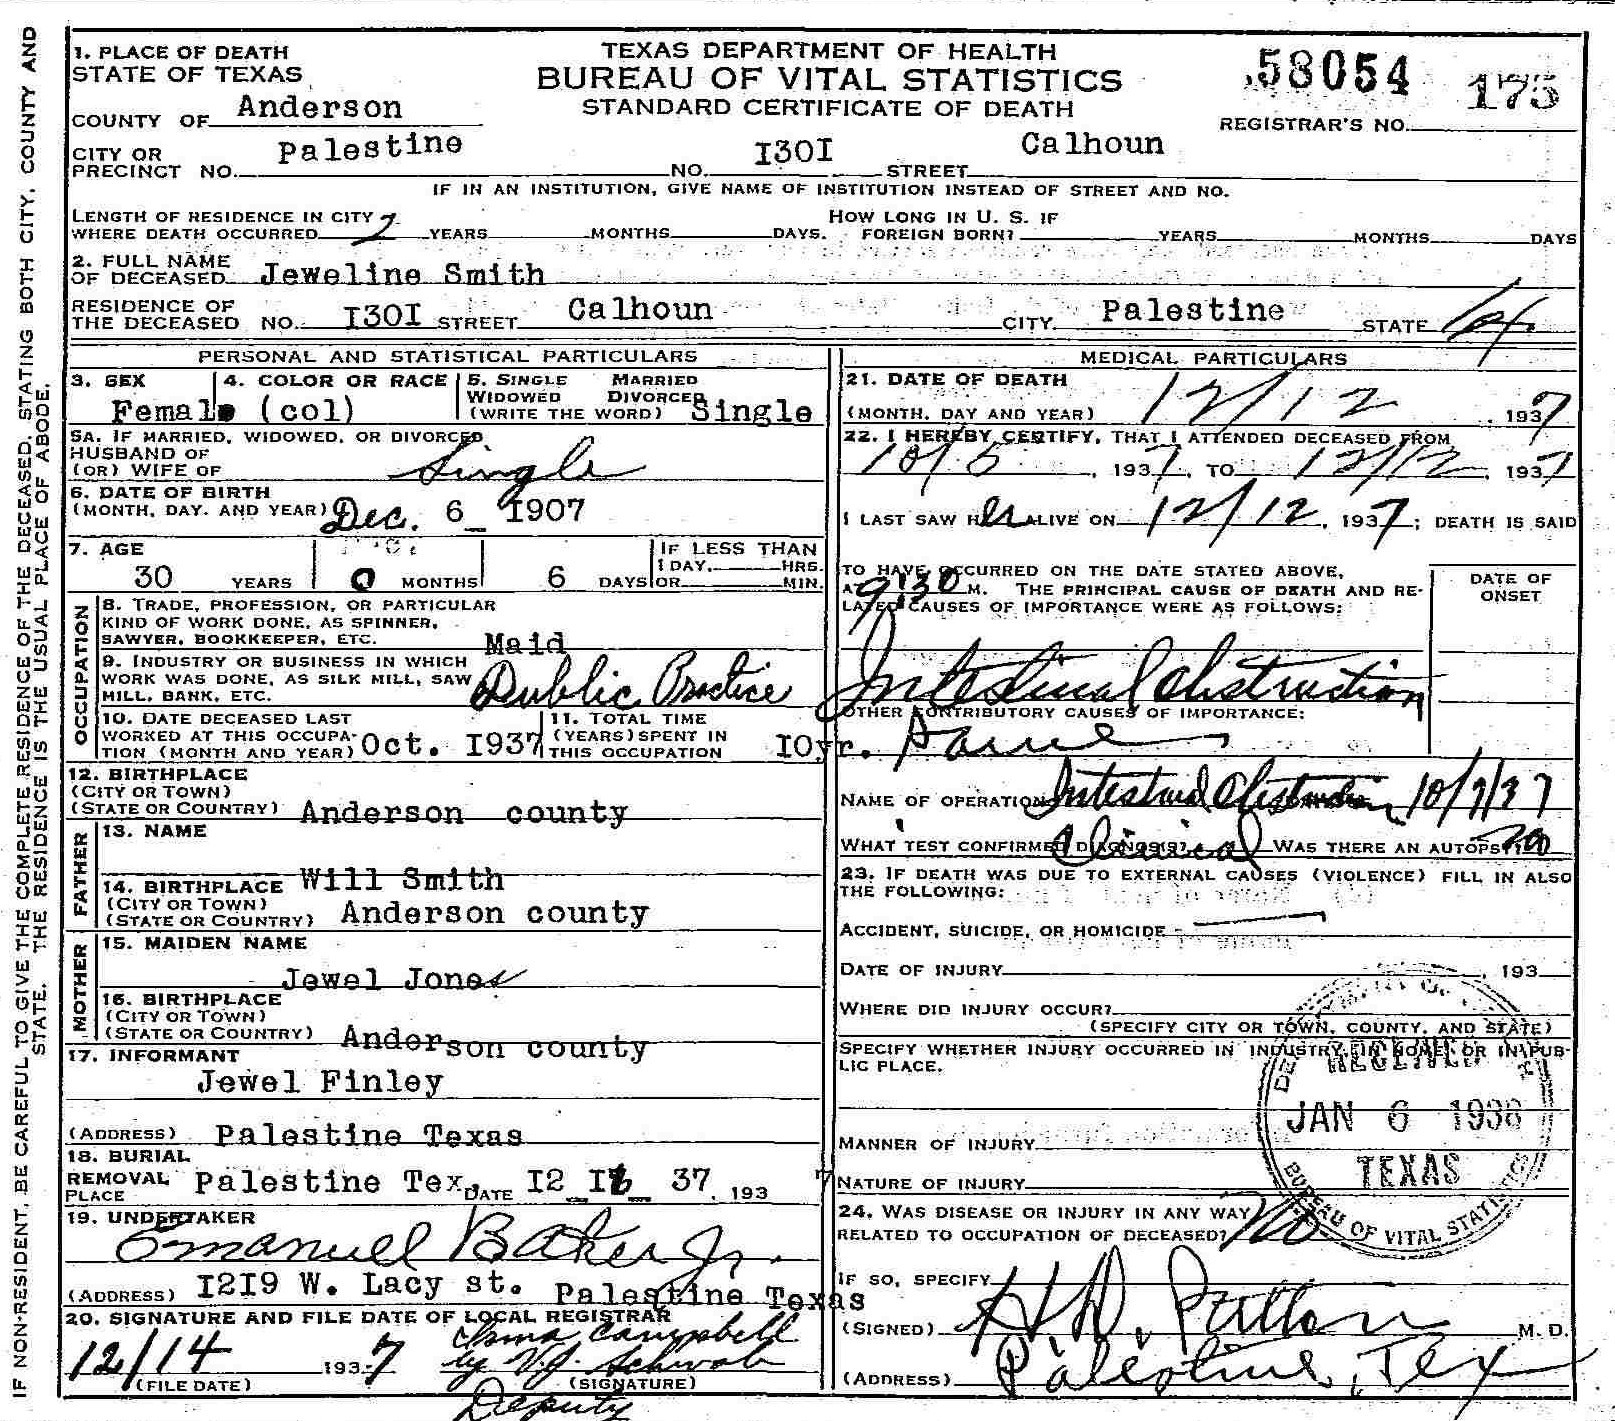 IF NON-RESIDENT, BE CAREFUL TO GIVE THE COMPLETE RESIDENCE OF THE DECEASED, STATING BOTH CITY, COUNTY AND
STATE. THE RESIDENCE IS THE USUAL PLACE OF ABODE.
1. PLACE OF DEATH
STATE OF TEXAS
COUNTY OF Anderson
CITY OR
PRECINCT NO. Palestine
TEXAS DEPARTMENT OF HEALTH
BUREAU OF VITAL STATISTICS
STANDARD CERTIFICATE OF DEATH
58054
175
REGISTRAR'S NO.
NO. I30I STREET Calhoun
IF IN AN INSTITUTION, GIVE NAME OF INSTITUTION INSTEAD OF STREET AND NO.
LENGTH OF RESIDENCE IN CITY
WHERE DEATH OCCURRED YEARS MONTHS DAYS.
HOW LONG IN U. S. IF
FOREIGN BORN? YEARS MONTHS DAYS
2. FULL NAME
OF DECEASED Jeweline Smith
RESIDENCE OF
THE DECEASED NO. I30I STREET Calhoun CITY Palestine STATE
PERSONAL AND STATISTICAL PARTICULARS
3. SEX Female
4. COLOR OR RACE (col)
5. SINGLE MARRIED
WIDOWED DIVORCED
(WRITE THE WORD) Single
5A. IF MARRIED, WIDOWED, OR DIVORCED
HUSBAND OF
(OR) WIFE OF Single
6. DATE OF BIRTH
(MONTH, DAY, AND YEAR) Dec. 6 1907
7. AGE
30 YEARS 0 MONTHS 6 DAYS
IF LESS THAN
1 DAY, HRS.
OR MIN.
OCCUPATION
8. TRADE, PROFESSION, OR PARTICULAR
KIND OF WORK DONE, AS SPINNER,
SAWYER, BOOKKEEPER, ETC. Maid
9. INDUSTRY OR BUSINESS IN WHICH
WORK WAS DONE, AS SILK MILL, SAW
MILL, BANK, ETC. Public Practice
10. DATE DECEASED LAST
WORKED AT THIS OCCUPA-
TION (MONTH AND YEAR) Oct. I937
11. TOTAL TIME
(YEARS) SPENT IN
THIS OCCUPATION I0yr.
12. BIRTHPLACE
(CITY OR TOWN)
(STATE OR COUNTRY) Anderson county
FATHER
13. NAME
Will Smith
14. BIRTHPLACE
(CITY OR TOWN)
(STATE OR COUNTRY) Anderson county
MOTHER
15. MAIDEN NAME
Jewel Jones
16. BIRTHPLACE
(CITY OR TOWN)
(STATE OR COUNTRY) Anderson county
17. INFORMANT
Jewel Finley
(ADDRESS) Palestine Texas
18. BURIAL
REMOVAL
PLACE Palestine Tex. DATE I2 37, 193 7
19. UNDERTAKER
Emanuell Baker Jr.
(ADDRESS) I2I9 W. Lacy st. Palestine Texas
20. SIGNATURE AND FILE DATE OF LOCAL REGISTRAR
12/14 1937
(FILE DATE)
Campbell
by V.J. Schwab
(SIGNATURE)
Deputy
MEDICAL PARTICULARS
21. DATE OF DEATH
(MONTH, DAY AND YEAR) 12/12, 1937
22. I HEREBY CERTIFY, THAT I ATTENDED DECEASED FROM
10/5, 1937, TO 12/12, 1937
I LAST SAW H er ALIVE ON 12/12, 1937; DEATH IS SAID
TO HAVE OCCURRED ON THE DATE STATED ABOVE,
AT 9:30 M. THE PRINCIPAL CAUSE OF DEATH AND RE-
LATED CAUSES OF IMPORTANCE WERE AS FOLLOWS:
DATE OF
ONSET
Intestinal Obstruction
OTHER CONTRIBUTORY CAUSES OF IMPORTANCE:
Same
NAME OF OPERATION Intestinal Obstruction 10/7/37
WHAT TEST CONFIRMED DIAGNOSIS? Clinical WAS THERE AN AUTOPSY? no
23. IF DEATH WAS DUE TO EXTERNAL CAUSES (VIOLENCE) FILL IN ALSO
THE FOLLOWING:
ACCIDENT, SUICIDE, OR HOMICIDE
DATE OF INJURY , 193
WHERE DID INJURY OCCUR?
(SPECIFY CITY OR TOWN, COUNTY, AND STATE)
SPECIFY WHETHER INJURY OCCURRED IN INDUSTRY, IN HOME, OR IN PUB-
LIC PLACE.
MANNER OF INJURY
NATURE OF INJURY
RECEIVED
JAN 6 1938
TEXAS
BUREAU OF VITAL STATISTICS
24. WAS DISEASE OR INJURY IN ANY WAY
RELATED TO OCCUPATION OF DECEASED? No
IF SO, SPECIFY
(SIGNED) M. D.
(ADDRESS) Palestine, Tex